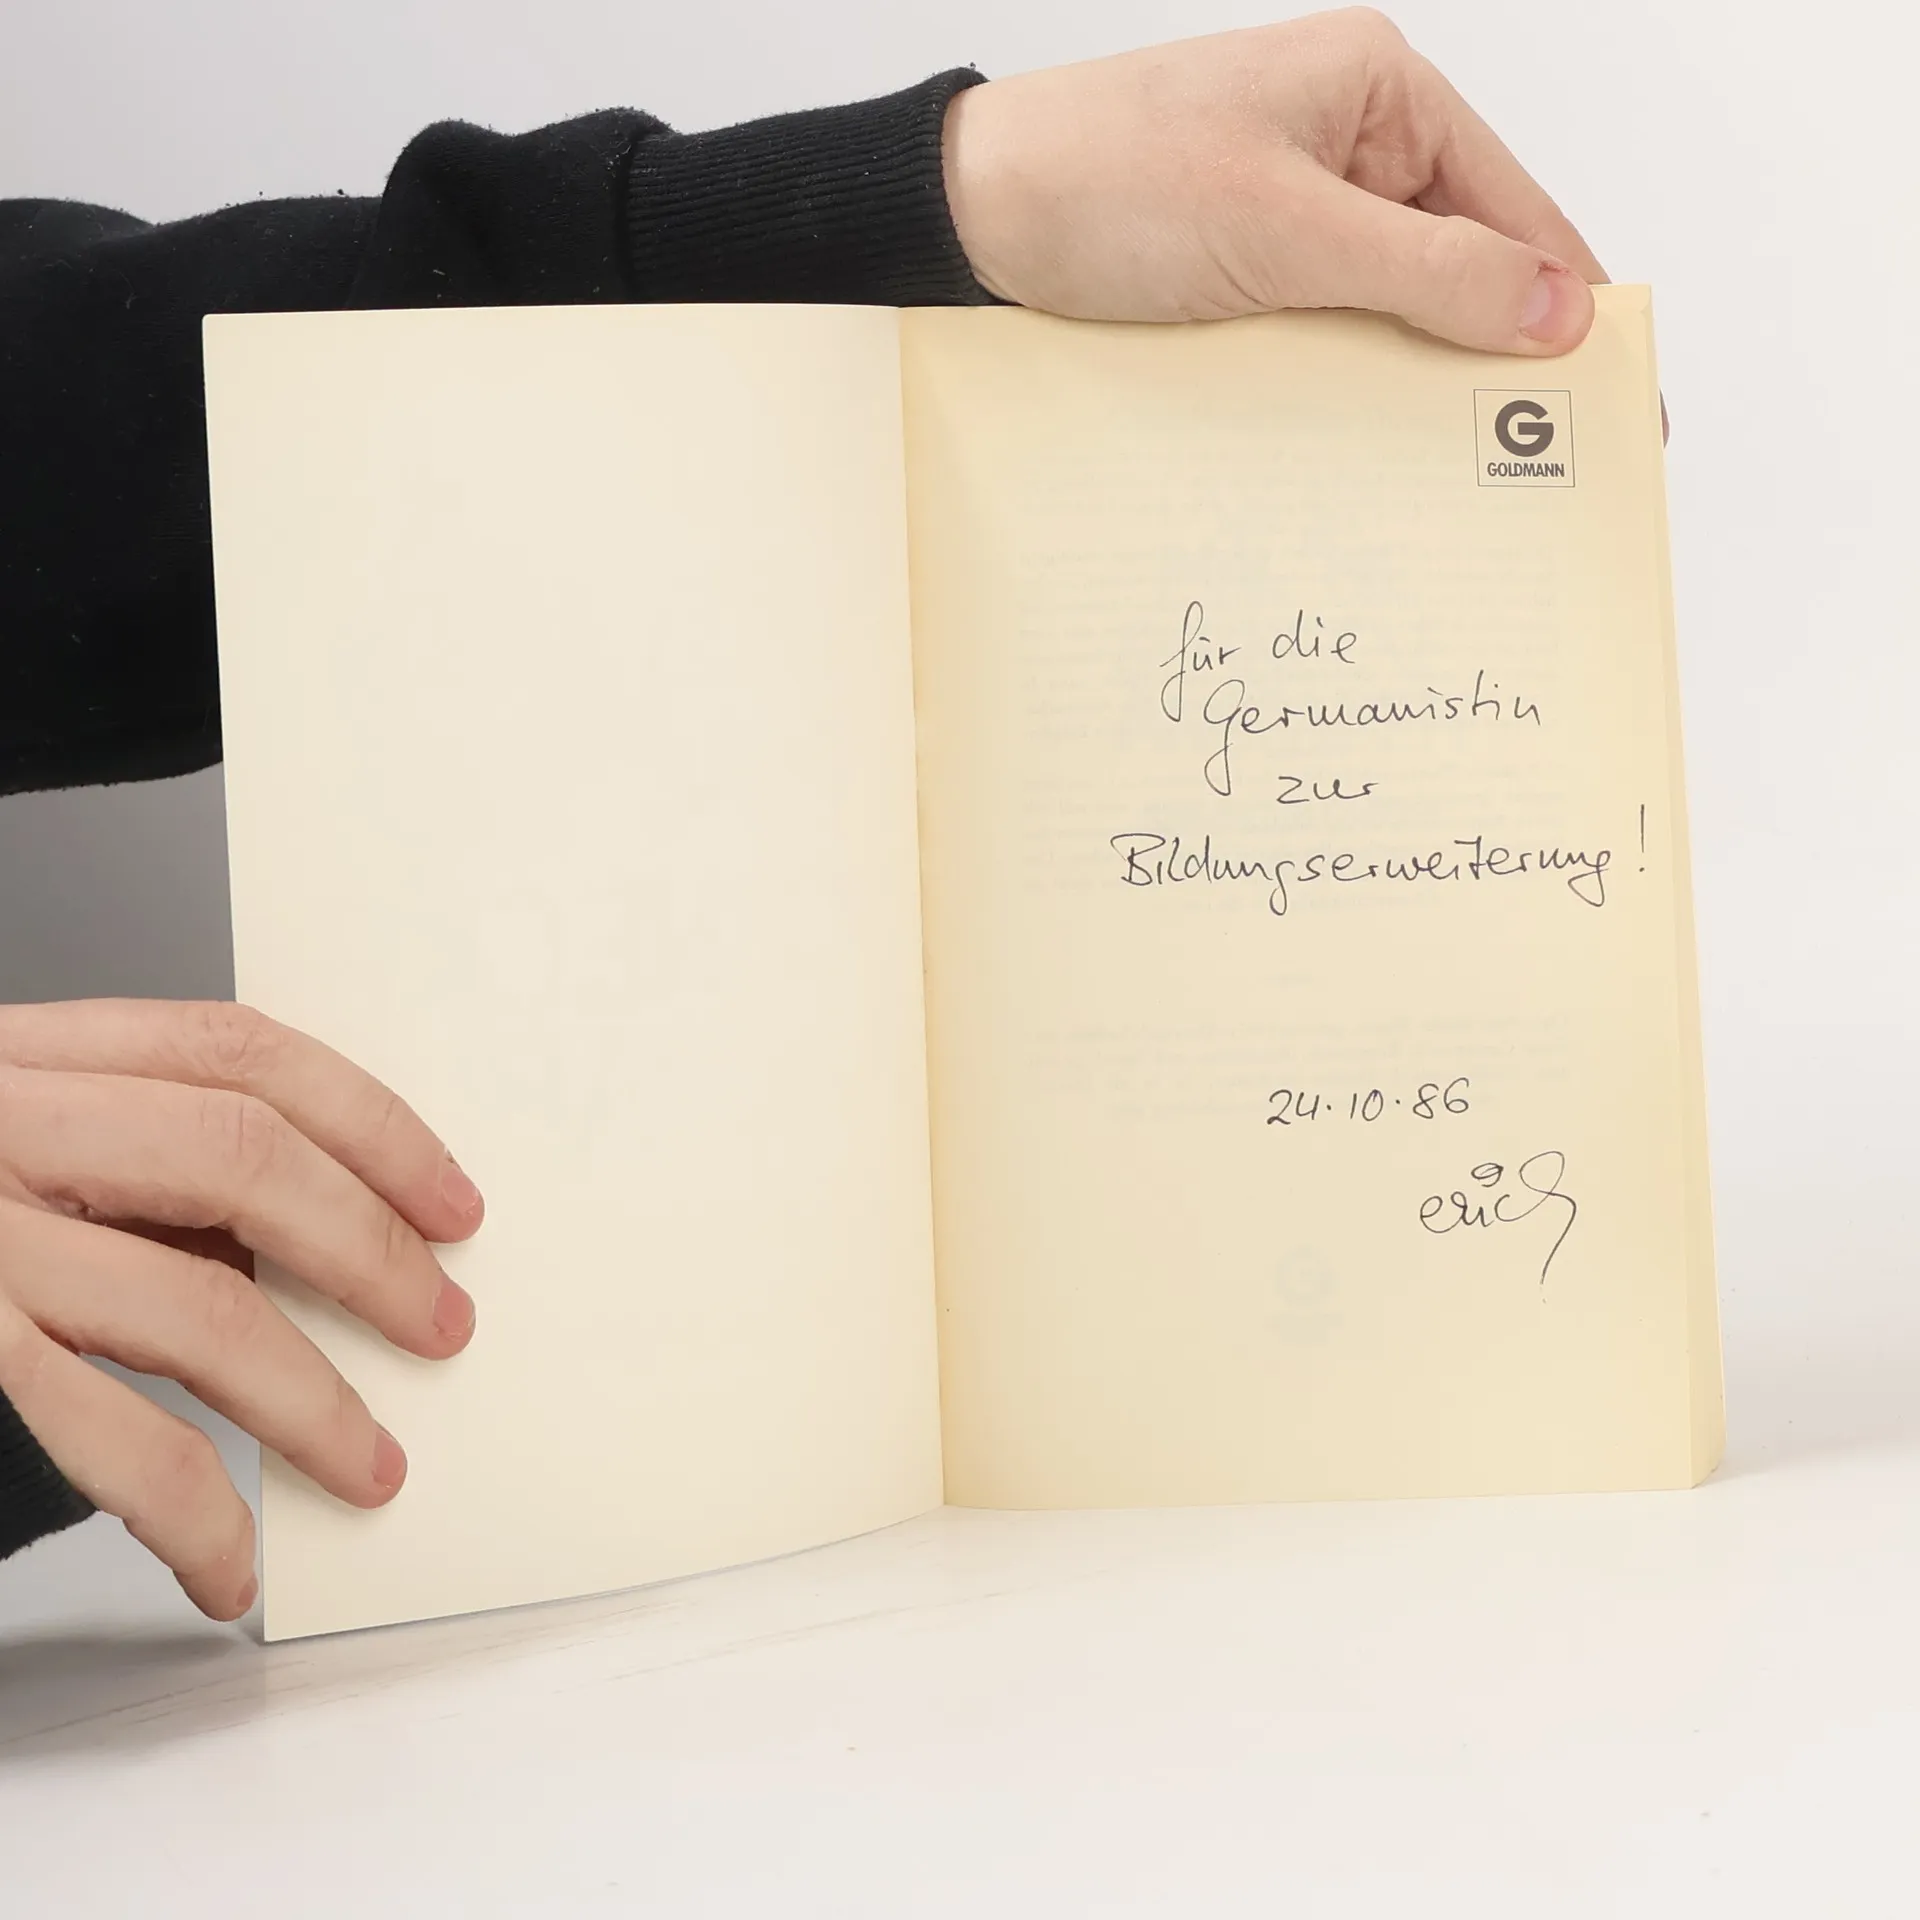 G
GOLDMANN
für die
Germanistin
zur
Bildungserweiterung!
24.10.86
erich